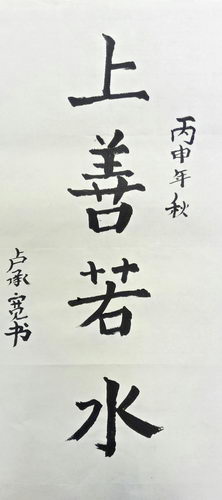 丙申年秋
上善若水
卢承宽书